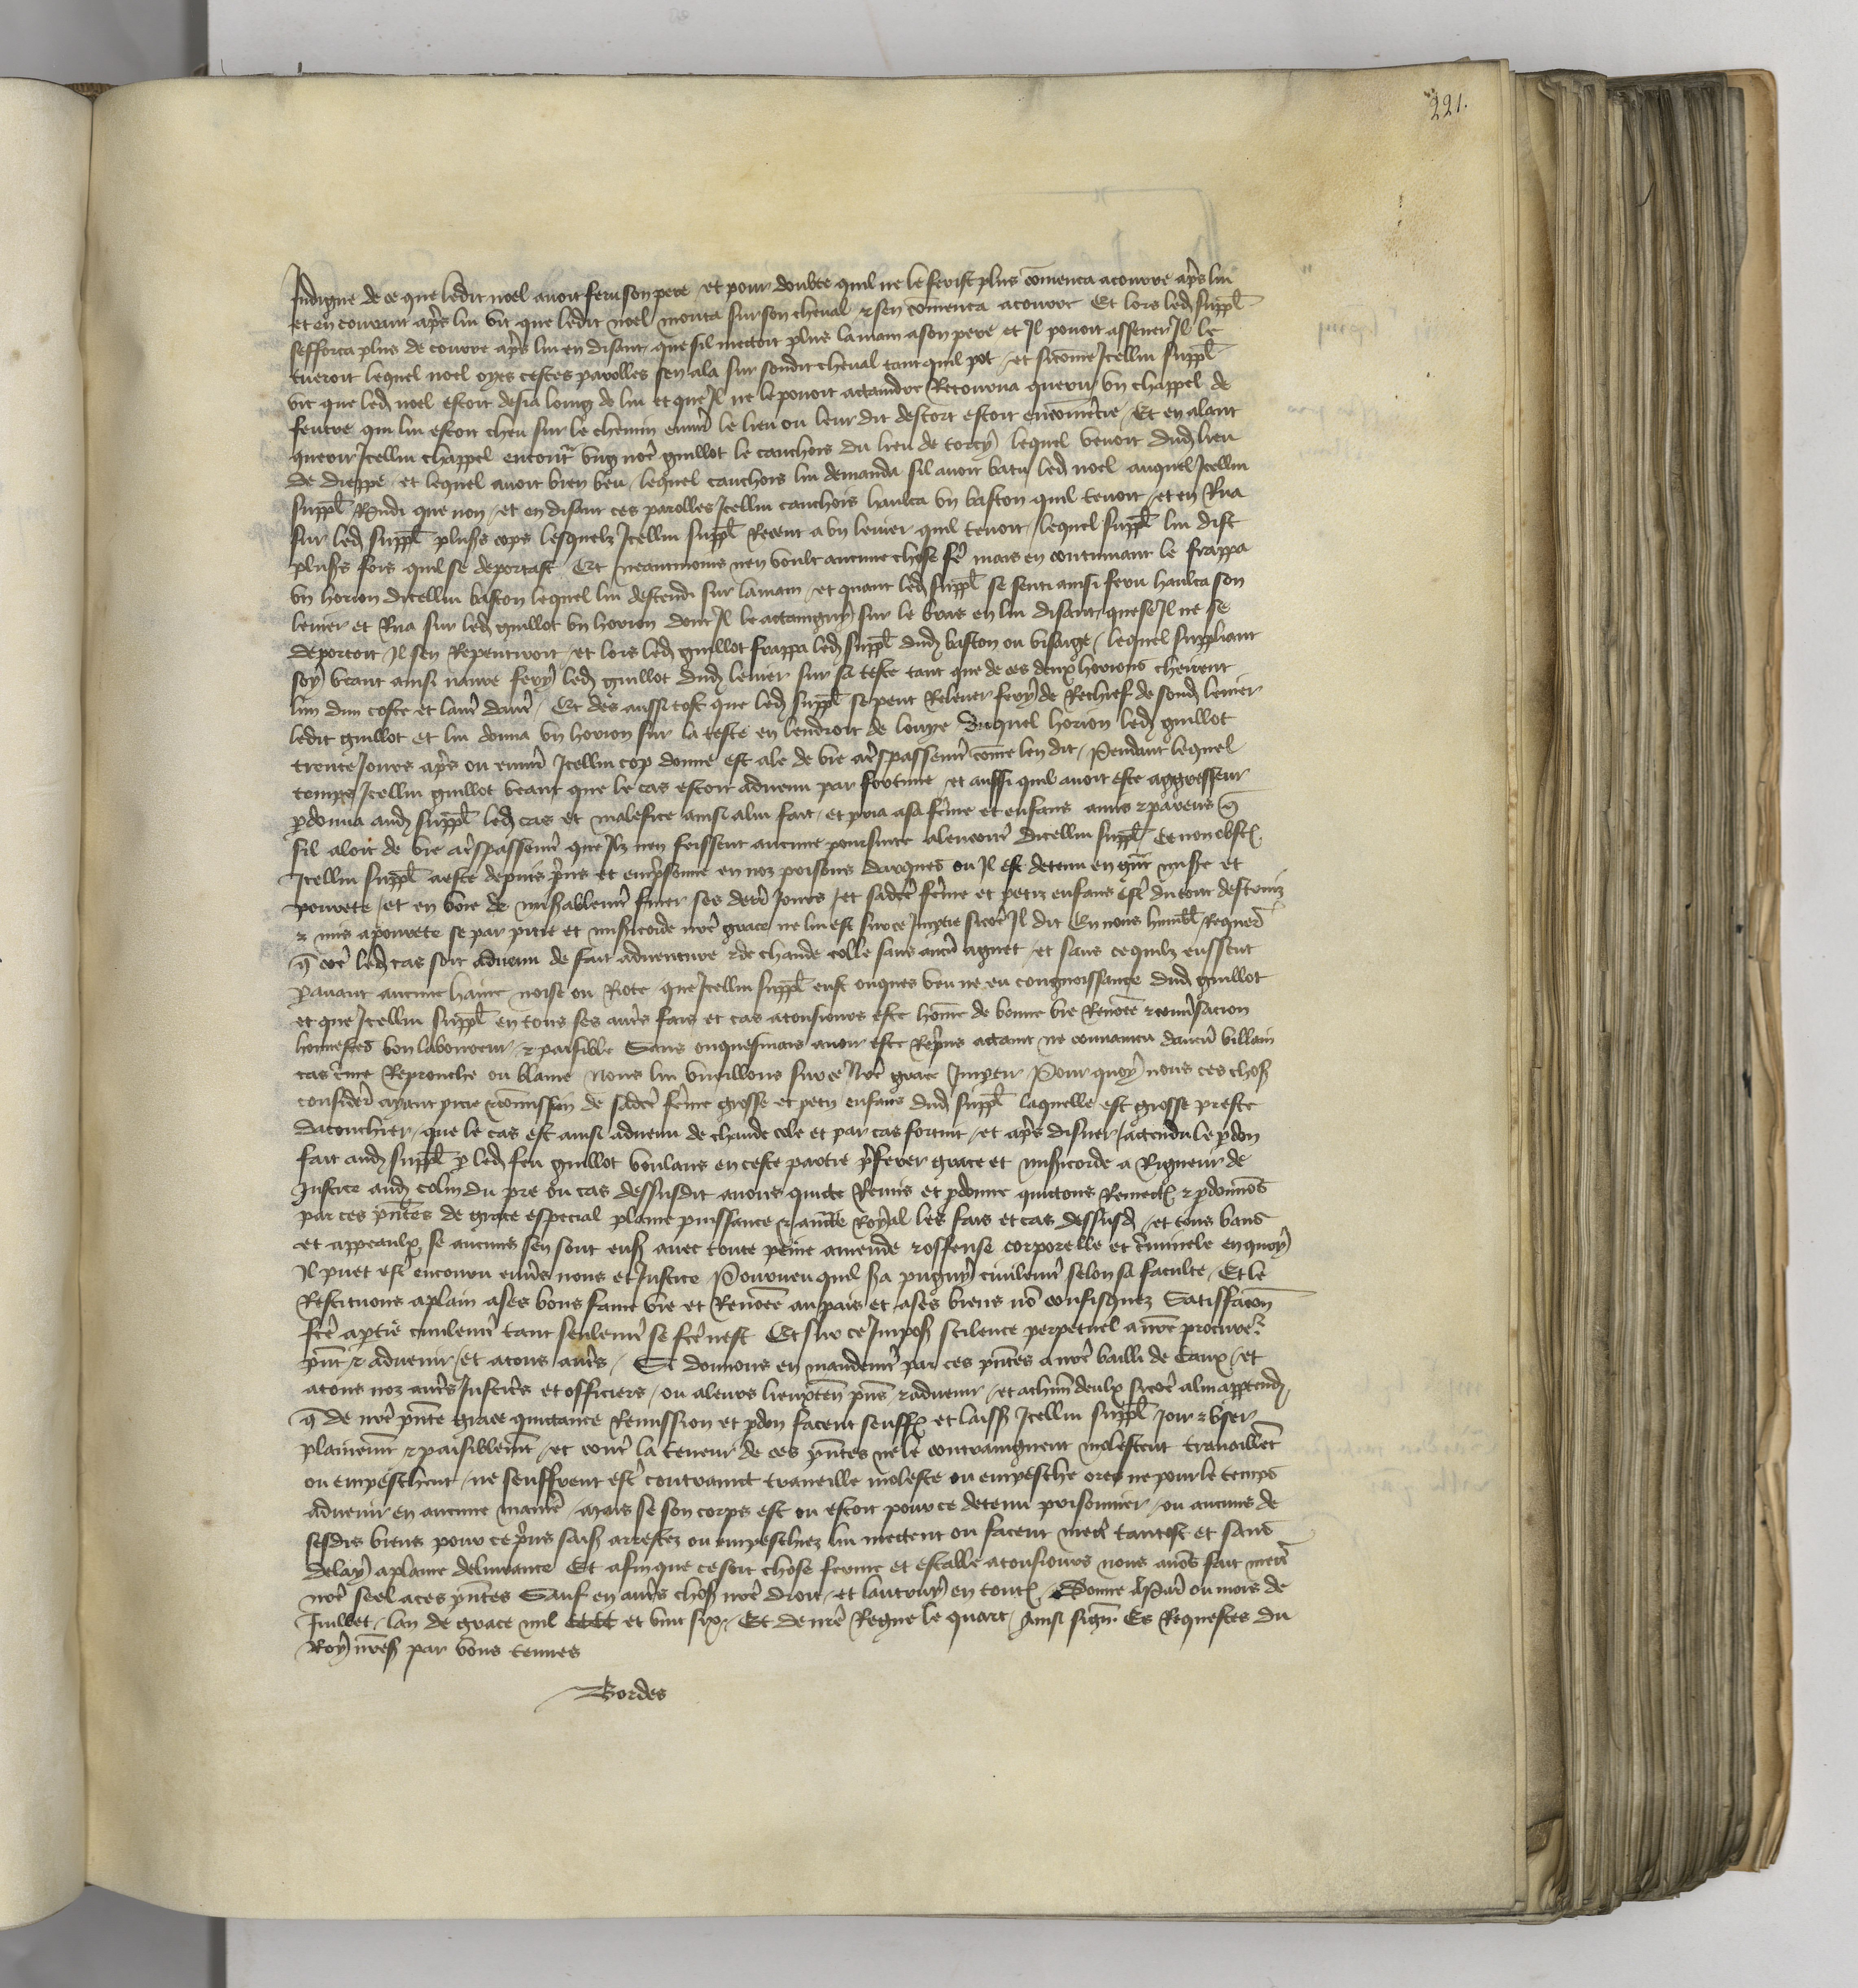 221.
Indigne de ce que ledit noel avoit feru son pere et pour doubte quil ne le ferist plus comenca acourre apres lui
et en courant apres lui vit que ledit noel monta sur son cheval & sen comenca acourre Et lors led suppl
sefforca plus de courre apres lui en disant que sil mectoit plus la main a son pere et Il povoit assener Il le
tueroit lequel noel oyes cestes parolles sen ala sur sondit cheval tant quil pot et sicome Icellui suppl
vit que led noel estoit desia loing de lui et que Il ne le povoit actaindre Retourna querir un chappel de
feutre qui lui estoit cheu sur le chemin envir le lieu ou leur dit descort estoit encomencie Et en alant
querir Icellui chappel encontra ung nome guillot le cauchois du lieu de torcy lequel venoit dud lieu
de dieppe et lequel avoit bien beu lequel cauchois lui demanda sil avoit batu led noel auquel Icellui
suppl Rndi que non et en disant ces parolles Icellui cauchois haulca un baston quil tenoit et en Rua
sur led suppl plus cops lesquelz Icellui suppl Receut a un levier quil tenoit lequel suppl lui dist
plus fois quil se deportast Et neantmoins nen voult aucune chose fe mais en continuant le frappa
un horion dicellui baston lequel lui descendi sur la main et quant led suppl se senti ainsi feru haulca son
levier et Rua sur led guillot un horion dont Il le actaingny sur le bras en lui disant que se Il ne se
deportoit Il sen Repentiroit et lors led guillot frappa led suppl dud baston ou visaige lequel suppliant
soy veant ainsi navre fery led guillot dud levier sur sa teste tant que de ces deux horions cheirent
lun dun coste et laut daut Et des aussi tost que led suppl se peut Relever fery de Rechief de sond levier
ledit guillot et lui donna un horion sur la teste en lendroit de louye Duquel horion led guillot
trente Jours apres ou envir Icellui cop donne est ale de vie a trespassement come len dit Pendant lequel
temps Icellui guillot veant que le cas estoit advenu par fortune et aussi quil avoit este aggresseur
pdonna aud suppl led cas et malefice ainsi a lui fait et pria a sa feme et enfans amis & parens q
sil aloit de vie a trespassement que Ilz nen feissent aucune poursuite alencont dicellui suppl Et non obst
Icellui suppl a este depuis prins et emprisonne en noz prisons darques ou Il est detenu en gnt misere et
povrete et en voie de misablement finer ses derr Jours et sadce feme et petiz enfans est du tout destruiz
& mis a povrete se par pitie et misericorde nre grace ne lui est sur ce Impetie sicoe Il dit En nous humbl Requer
q coe led cas soit advenu de fait adventure & de chaude colle sans aucun aguet et sans ce quilz eussent
pavant aucune haine noise ou Riote que Icellui suppl eust onques veu ne eu congnoissance dud guillot
et que Icellui suppl en tous ses autres fais et cas a tousjours este home de bonne vie Renoee & conversacion
honnestes bon laboureur & paisible Sans onquesmais avoir este Reprins actaint ne convaincu daucun villain
cas crime Reprouche ou blame Nous lui vueillons sur ce Nre grace Impetir Pour quoy nous ces choses
consideres ayant pitie & compassion de sadce feme grosse et petis enfans dud suppl laquelle est grosse preste
dacouchier que le cas est ainsi advenu de chaude cole et par cas fortuit et apres disner actendu le pdon
fait aud suppl p led feu guillot voulans en ceste partie preferer grace et misericorde a Rigueur de
Justice aud colin du pre ou cas dessusdit avons quicte Remis et pdonne quictons Remect & pdonnons
par ces pntes de grace especial plaine puissance & aucte Royal les fais et cas dessusd et tous bans
et appeaulx se aucuns sen sont ens avec toute peine amende & offense corporelle et criminele en quoy
Il puet est encouru envers nous et Justice Pourveu quil sa pugny civilement selon sa faculte Et le
Restituons a plain a ses bons fame vie et Renoee au pais et a ses biens no confisquez Satisfacion
fce a ptie civilement tant seulement se fce nest Et sur ce Imposons scilence perpetuel a nre procureur
pnt & advenir et a tous autres Si donnons en mandement par ces pntes a nre bailli de Caux et
a tous noz autres Justiciers et officiers ou a leurs lieuxten pns & advenir et a chun deulx sicoe a lui apptend
q de nre pnte grace quictance Remission et pdon facent seuff et laiss Icellui suppl Joir & user
plainement & paisiblement et cont la teneur de ces pntes ne le contraingnent molestent travaillet
ou empeschent ne seuffrent est contraint traveille moleste ou empesche ores ne pour le temps
advenir en aucune maniere Mais se son corps est ou estoit pour ce detenu prisonnier ou aucuns de
sesdis biens pour ce prins saisis arrestez ou empeschiez lui mectent ou facent mectre tantost et sans
delay a plaine delivrance Et afin que ce soit chose ferme et estable a tousjours nous avons fait mectre
nre seel a ces pntes Sauf en autres choses nre droit et lautruy en toutes Donne a Paris ou mois de
Juillet lan de grace mil CCCC et vint six Et de nre Regne le quart Ainsi sign Es Requestes du
Roy nres par vous tenues
Bordes